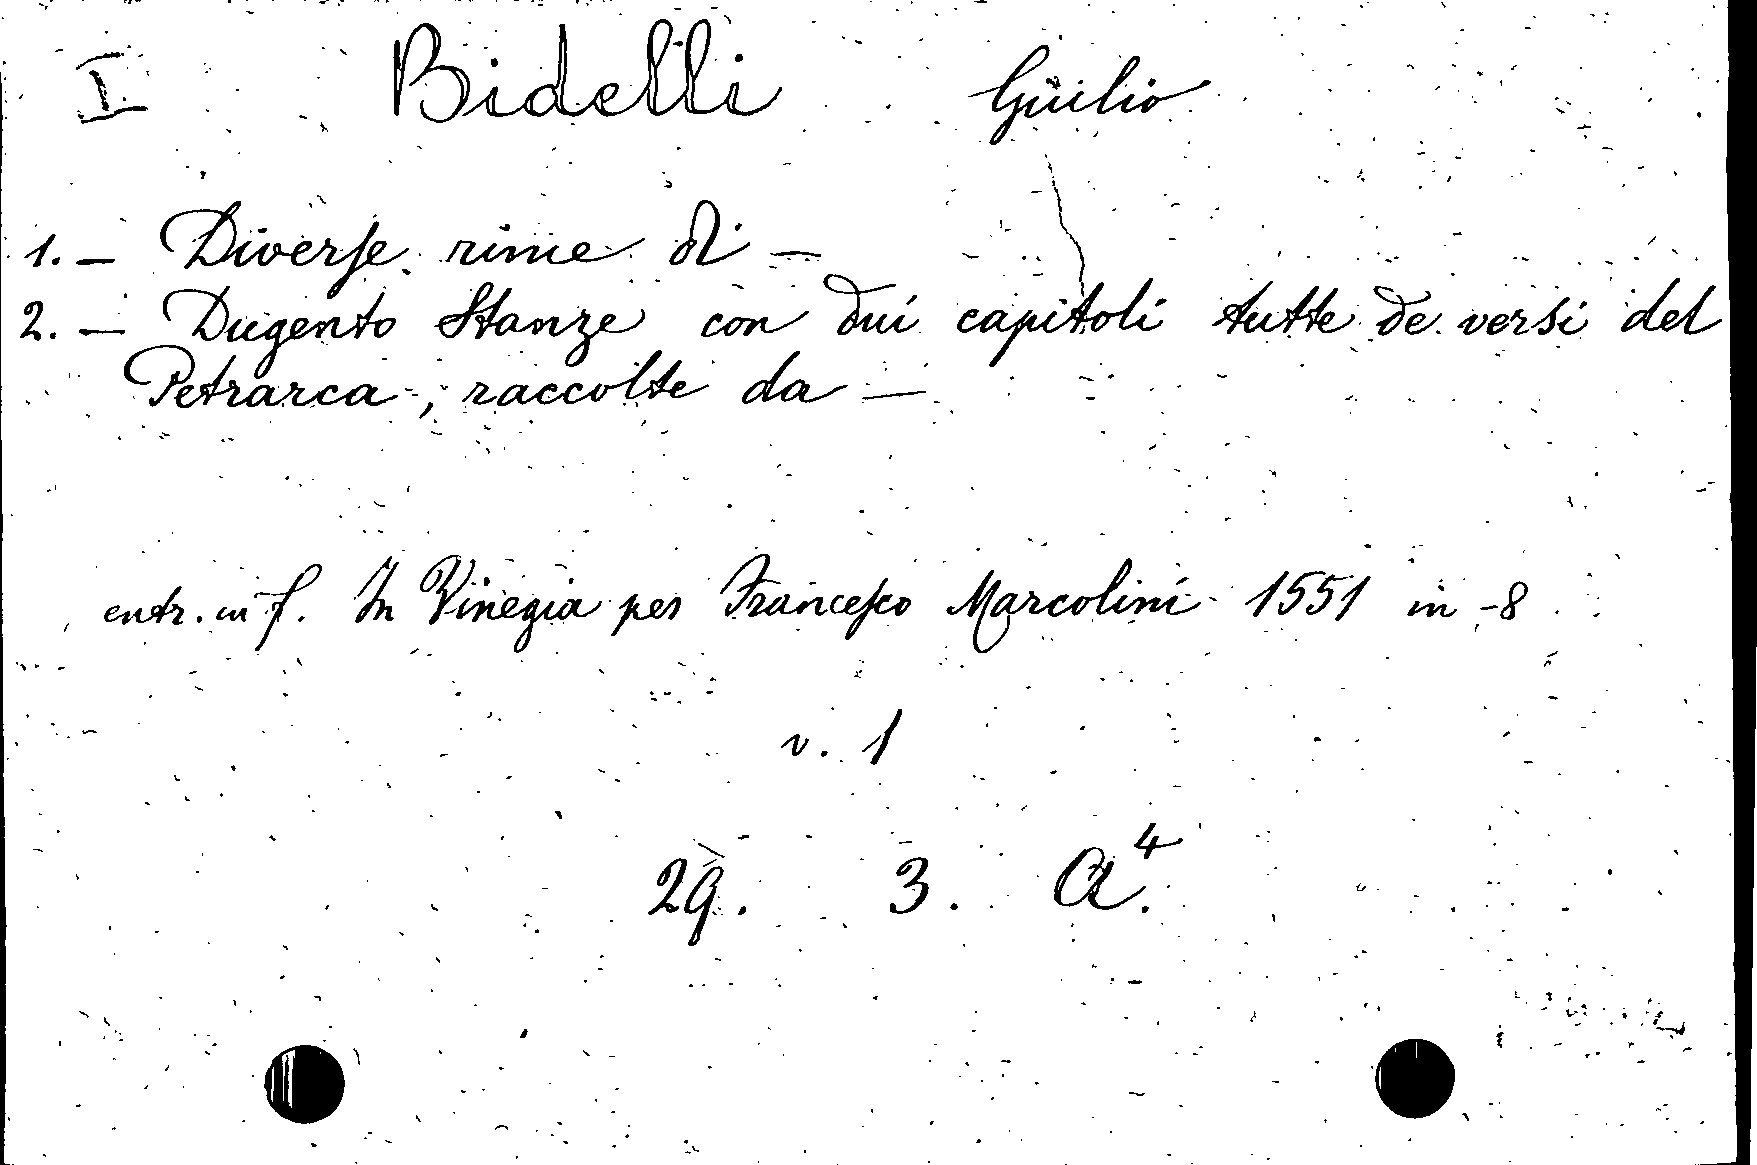 I Bidelli Giulio
1. — Diverse rime di —
2. — Dugento Stanze con dui capitoli tutte de versi del
Petrarca, raccolte da —
entr. in f. In Vinegia per Francesco Marcolini 1551 in -8
v. 1
29. 3. A⁴.